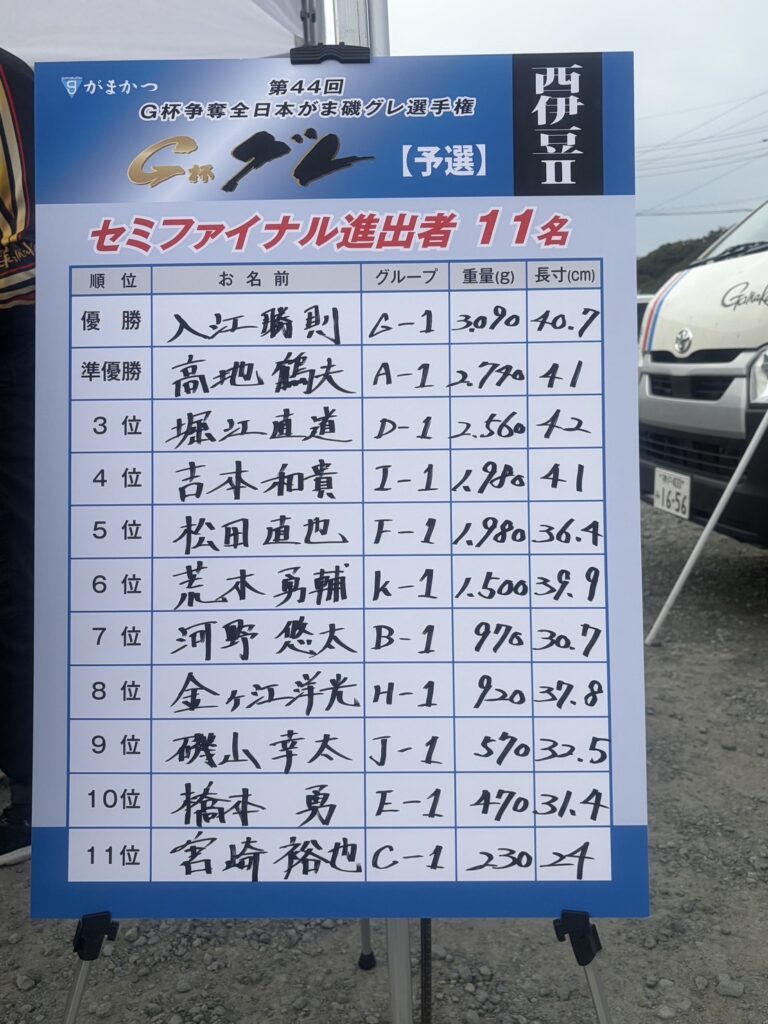 がまかつ
第44回
G杯争奪全日本がま磯グレ選手権
G杯 グレ 【予選】
西伊豆II
セミファイナル進出者 11名
順位 お名前 グループ 重量(g) 長寸(cm)
優勝 入江勝則 G-1 3.090 40.7
準優勝 高地鶴夫 A-1 2.740 41
3位 堀江直道 D-1 2.560 42
4位 吉本和貴 I-1 1.980 41
5位 松田直也 F-1 1.980 36.4
6位 荒木勇輔 K-1 1.500 39.9
7位 河野悠太 B-1 970 30.7
8位 金ヶ江洋光 H-1 920 37.8
9位 磯山幸太 J-1 570 32.5
10位 橋本勇 E-1 470 31.4
11位 宮崎裕也 C-1 230 24
Gamak
16-56